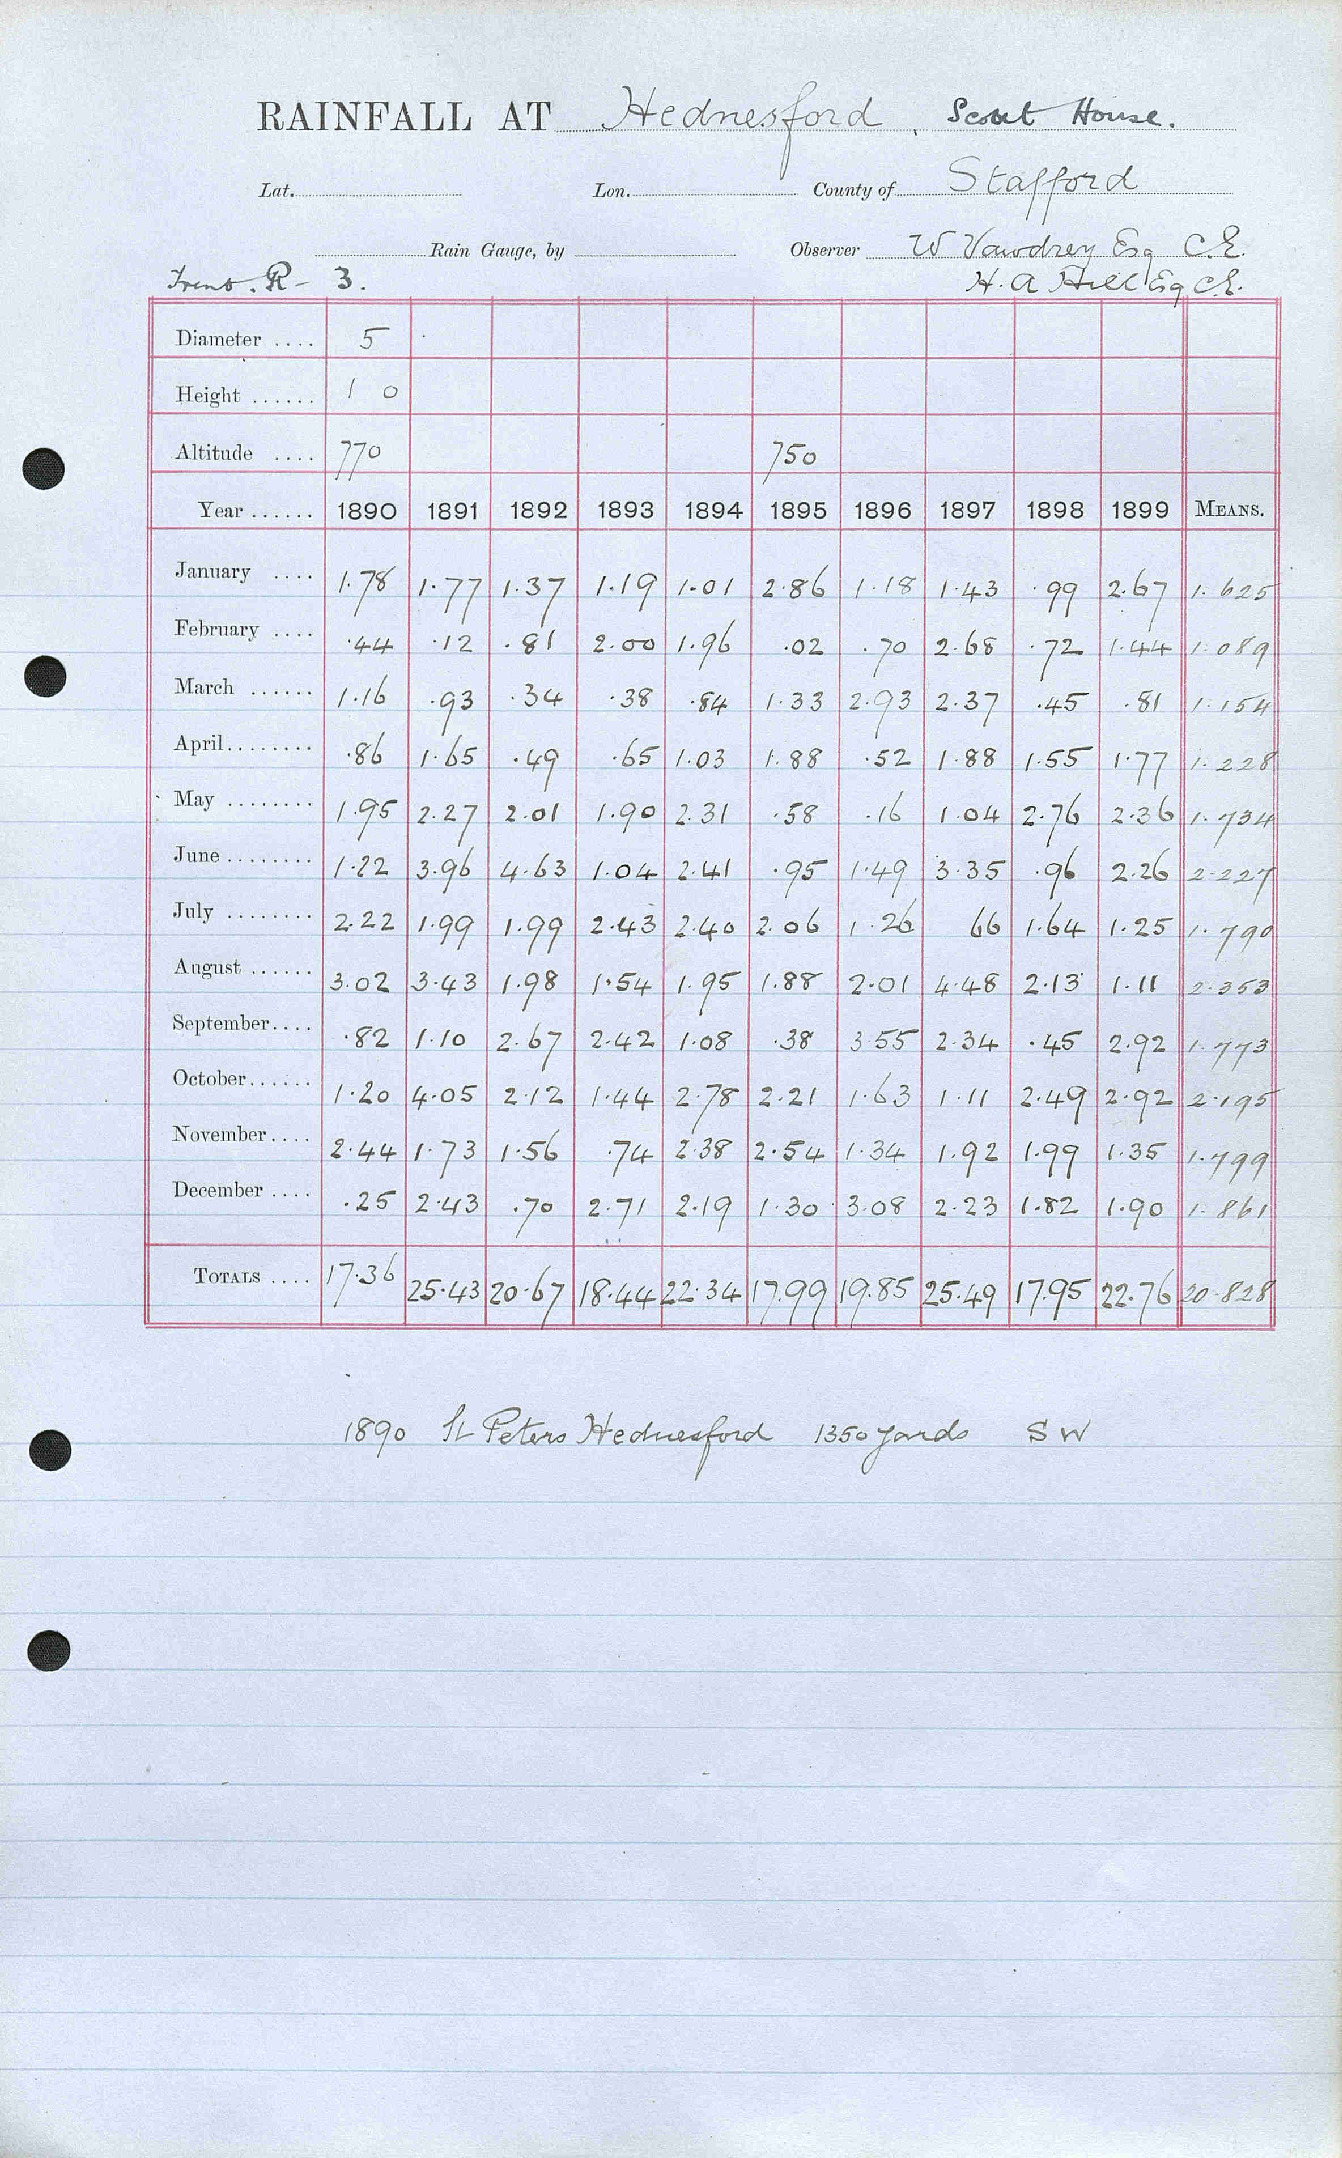 RAINFALL AT Hednesford, Scout House.
Lat. Lon. County of Stafford
Rain Gauge, by Observer W Vawdrey Esq C.E.
Trent. R - 3. H. A Hill Esq C.E.
Diameter .... 5
Height ...... 1 0
Altitude .... 770 750
Year ...... 1890 1891 1892 1893 1894 1895 1896 1897 1898 1899 MEANS.
January .... 1.78 1.77 1.37 1.19 1.01 2.86 1.18 1.43 .99 2.67 1.625
February .... .44 .12 .81 2.00 1.96 .02 .70 2.68 .72 1.44 1.089
March ...... 1.16 .93 .34 .38 .84 1.33 2.93 2.37 .45 .81 1.154
April........ .86 1.65 .49 .65 1.03 1.88 .52 1.88 1.55 1.77 1.228
May ........ 1.95 2.27 2.01 1.90 2.31 .58 .16 1.04 2.76 2.36 1.734
June ........ 1.22 3.96 4.63 1.04 2.41 .95 1.49 3.35 .96 2.26 2.227
July ........ 2.22 1.99 1.99 2.43 2.40 2.06 1.26 66 1.64 1.25 1.790
August ...... 3.02 3.43 1.98 1.54 1.95 1.88 2.01 4.48 2.13 1.11 2.353
September.... .82 1.10 2.67 2.42 1.08 .38 3.55 2.34 .45 2.92 1.773
October...... 1.20 4.05 2.12 1.44 2.78 2.21 1.63 1.11 2.49 2.92 2.195
November.... 2.44 1.73 1.56 .74 2.38 2.54 1.34 1.92 1.99 1.35 1.799
December .... .25 2.43 .70 2.71 2.19 1.30 3.08 2.23 1.82 1.90 1.861
TOTALS .... 17.36 25.43 20.67 18.44 22.34 17.99 19.85 25.49 17.95 22.76 20.828
1890 St Peters Hednesford 1350 yards S W